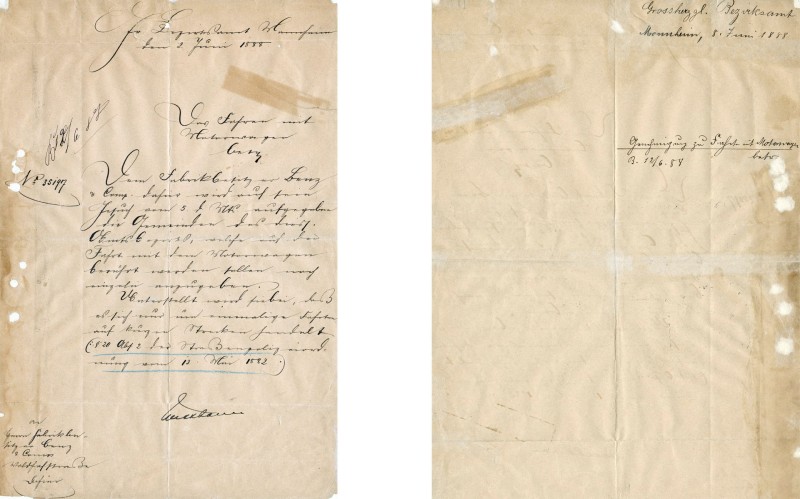 Gr. Bezirksamt Mannheim
den 8. Juni 1888.
Das Fahren mit
Motorwagen
betr.
No 33197
Dem Fabrikbesitzer Benz
& Comp. dahier wird auf sein
Gesuch vom 5. d. Mts. aufgegeben
die Gemeinden des dies.
Amtsbezirks, welche mit der
Fahrt mit dem Motorwagen
berührt werden sollen noch
einzeln anzugeben.
Unterstellt wird hiebei, daß
es sich nur um einmalige Fahrten
auf kurzen Strecken handelt
(§ 20 Abs 2 der Straßenpolizeiord-
nung vom 12 Mai 1882)
An
Herrn Fabrikbe-
sitzer Benz
& Comp
Waldhofstraße
Dahier
Grossherzgl. Bezirksamt
Mannheim, 8. Juni 1888
Genehmigung zu Fahrt mit Motorwagen
betr
B. 12/6.